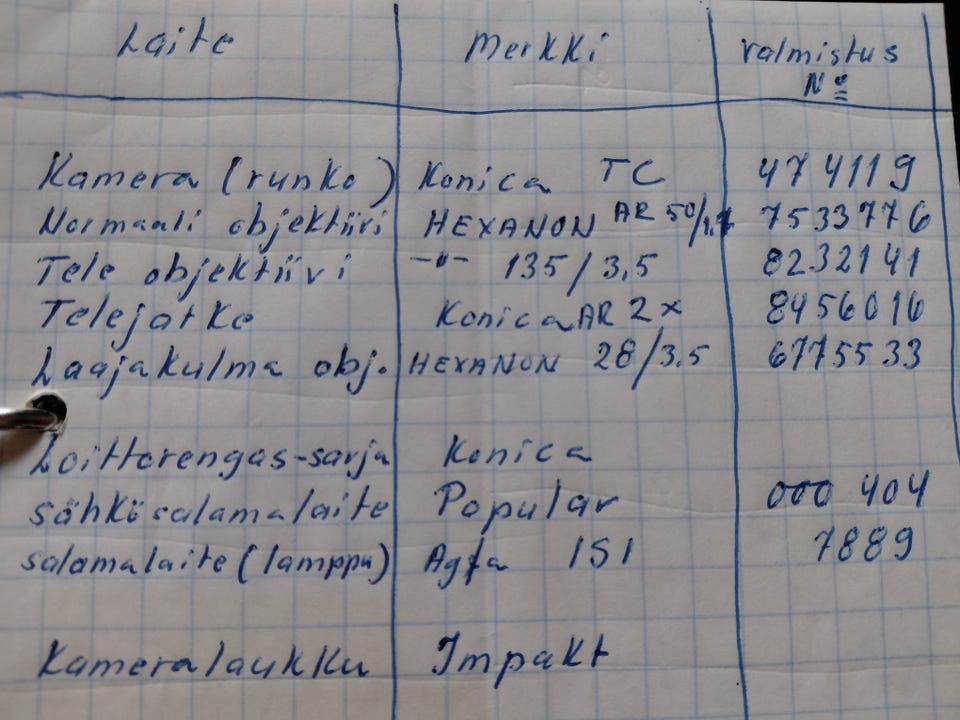 Laite Merkki valmistus
Nº
Kamera (runko) Konica TC 474119
Normaali objektiivi HEXANON AR 50/1,7 7533776
Tele objektiivi -"- 135/3,5 8232141
Telejatke Konica AR 2x 8456016
Laajakulma obj. HEXANON 28/3.5 6775533
Loittorengas-sarja Konica
sähkösalamalaite Popular 000 404
salamalaite (lamppu) Agfa 151 7889
Kameralaukku Impakt